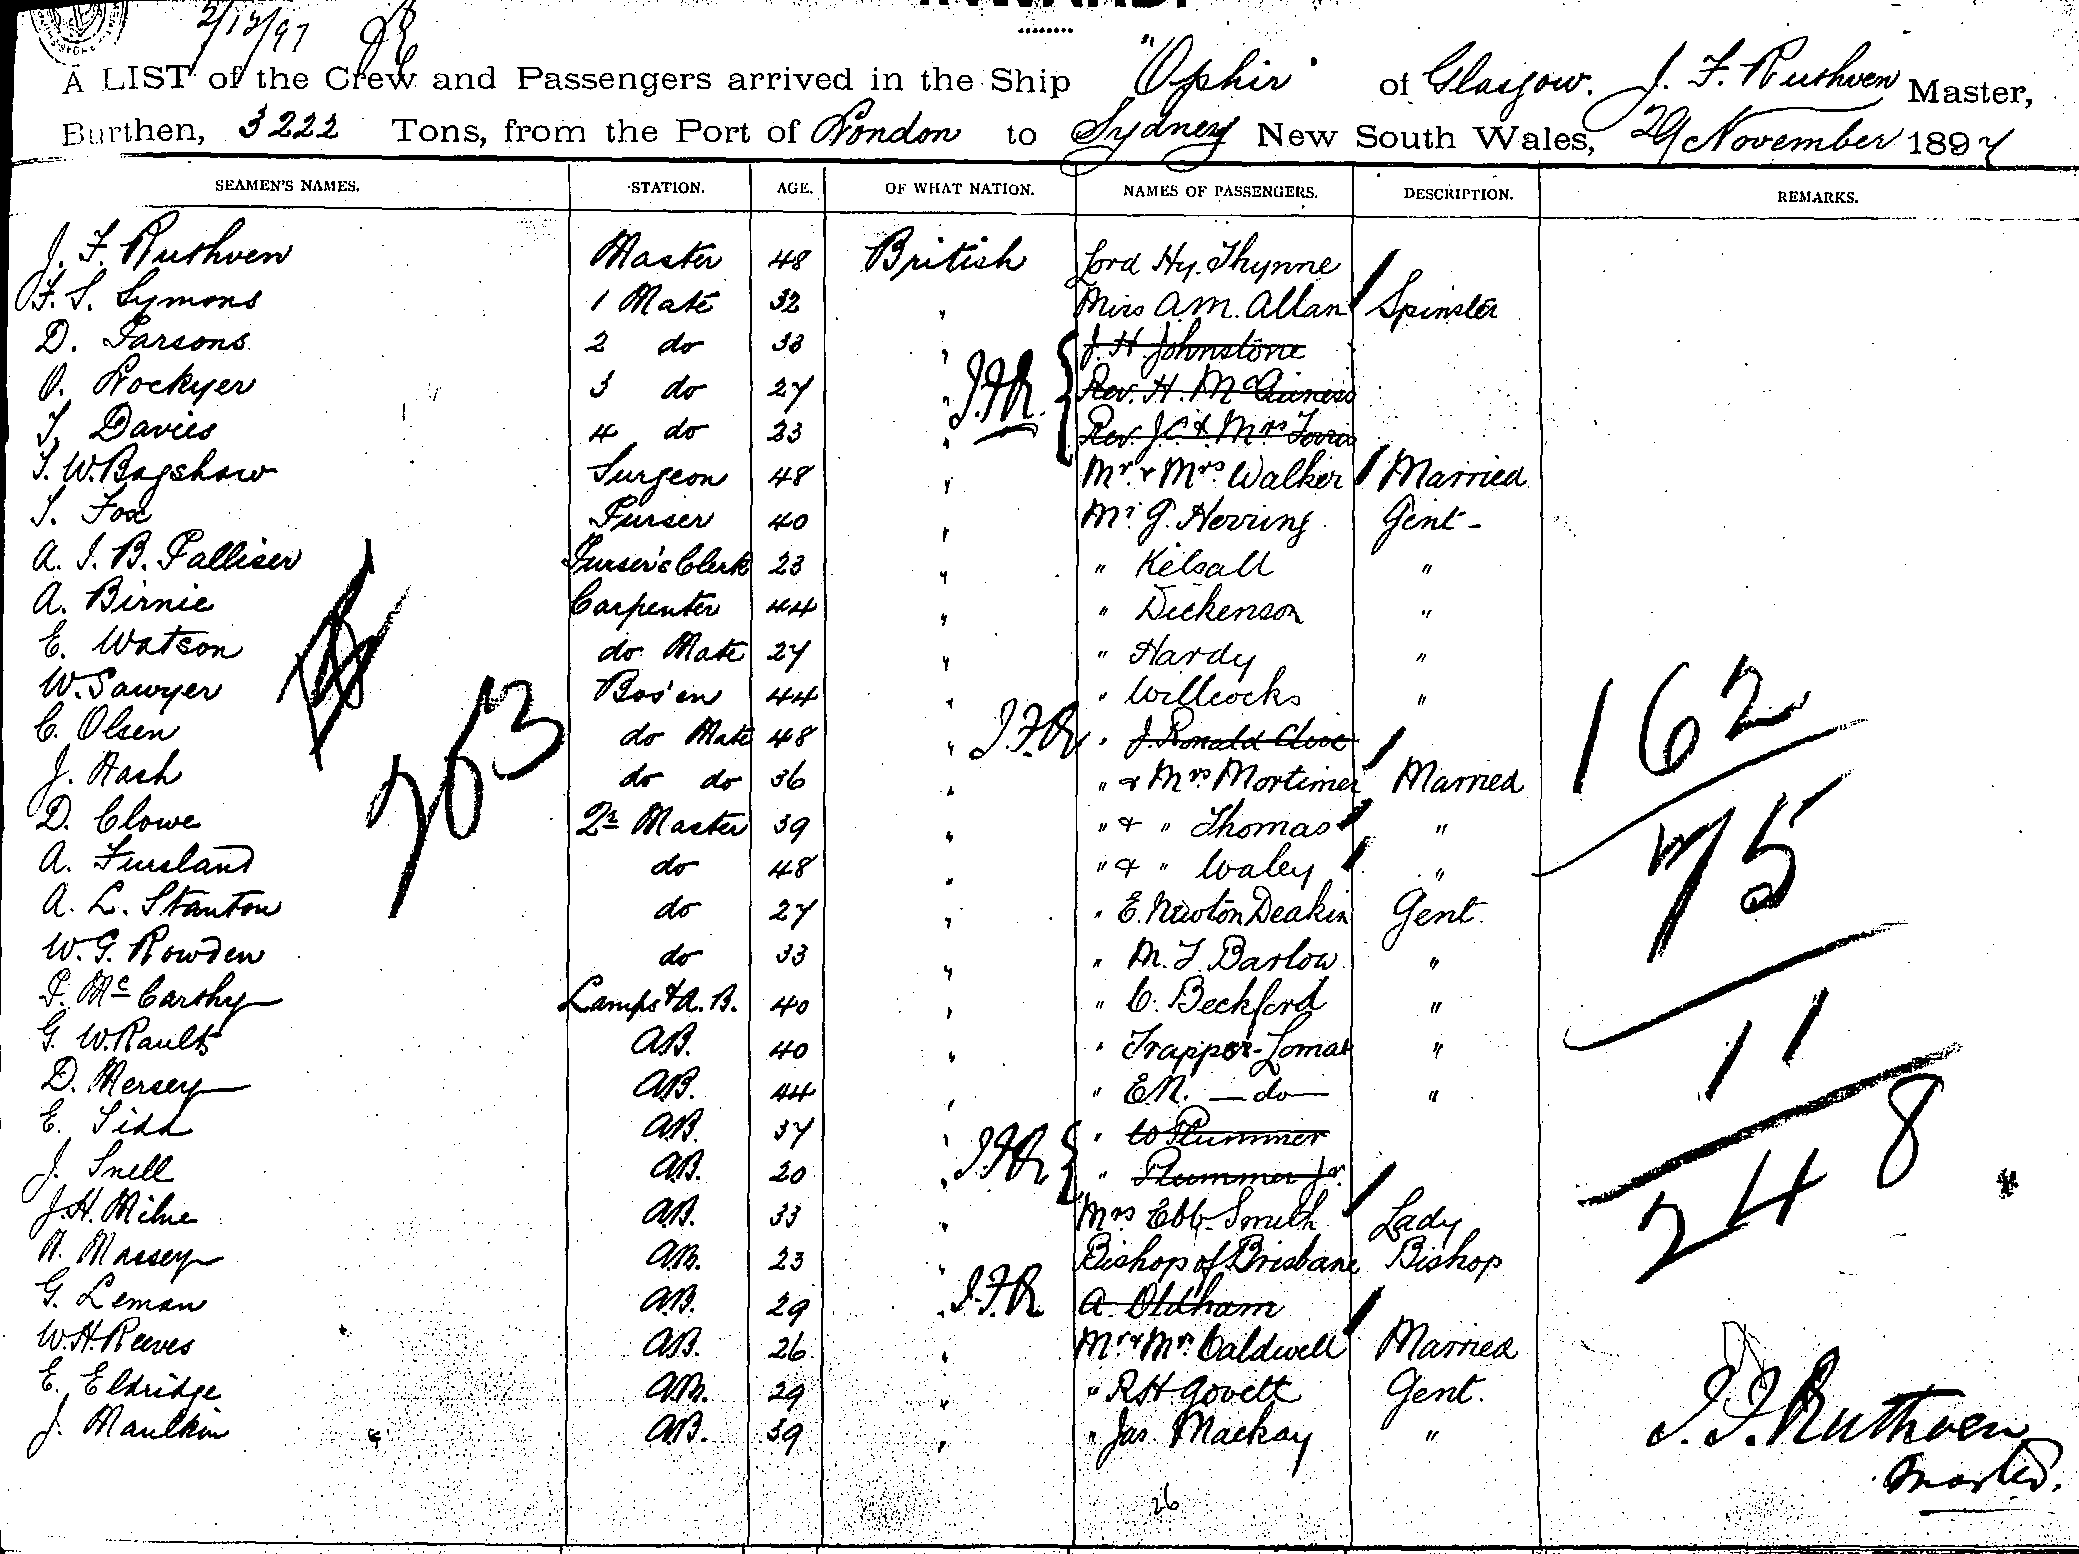 2/12/97
A LIST of the Crew and Passengers arrived in the Ship "Ophir" of Glasgow. J. F. Ruthven Master,
Burthen, 3222 Tons, from the Port of London to Sydney New South Wales, 29 November 1897
SEAMEN'S NAMES. STATION. AGE. OF WHAT NATION. NAMES OF PASSENGERS. DESCRIPTION. REMARKS.
J. F. Ruthven Master 48 British Lord Hy. Thynne
F. S. Symons 1 Mate 32 " Miss A.M. Allan Spinster
D. Parsons 2 do 33 " J. H. Johnstone
O. Lockyer 3 do 27 " J.F.R. Rev. H. McGuiness
T. Davies 4 do 23 " Rev. J.C. & Mrs
T. W. Bagshaw Surgeon 48 " Mr & Mrs Walker Married
T. Fox Purser 40 " Mr G. Herring Gent-
A. J. B. Palliser Purser's Clerk 23 " " Kelsall "
A. Birnie Carpenter 44 " " Dickenson "
E. Watson do Mate 27 " " Hardy "
W. Sawyer Bos'en 44 " " Willcocks "
C. Olsen do Mate 48 " J.F.R. " J. Ronald Clive
J. Hash do do 36 " " & Mrs Mortimer Married
D. Clowe Qr Master 39 " " & " Thomas "
A. Fursland do 48 " " & " Waley "
A. L. Stanton do 27 " " E. Newton Deakin Gent.
W. G. Rowden do 33 " " M. T. Barlow "
P. McCarthy Lamps & A.B. 40 " " C. Beckford "
G. W. Rault AB. 40 " " Trapper-Lomax "
D. Mersey AB. 44 " " E.N. - do - "
E. Sidd AB. 37 " " W Plummer
J. Snell AB. 20 " J.F.R. " Plummer Jr.
J. H. Milne AB. 33 " Mrs Ebb-Smith Lady
H. Massey AB. 23 " Bishop of Brisbane Bishop
G. Leman AB. 29 " J.F.R. A. Oldham
W. H. Reeves AB. 26 " Mr & Mrs Caldwell Married
E. Eldridge AB. 29 " " R H Govett Gent.
J. Maulkin AB. 39 " " Jas. Mackay "
263
162
75
11
248
26
J. F. Ruthven
Master.